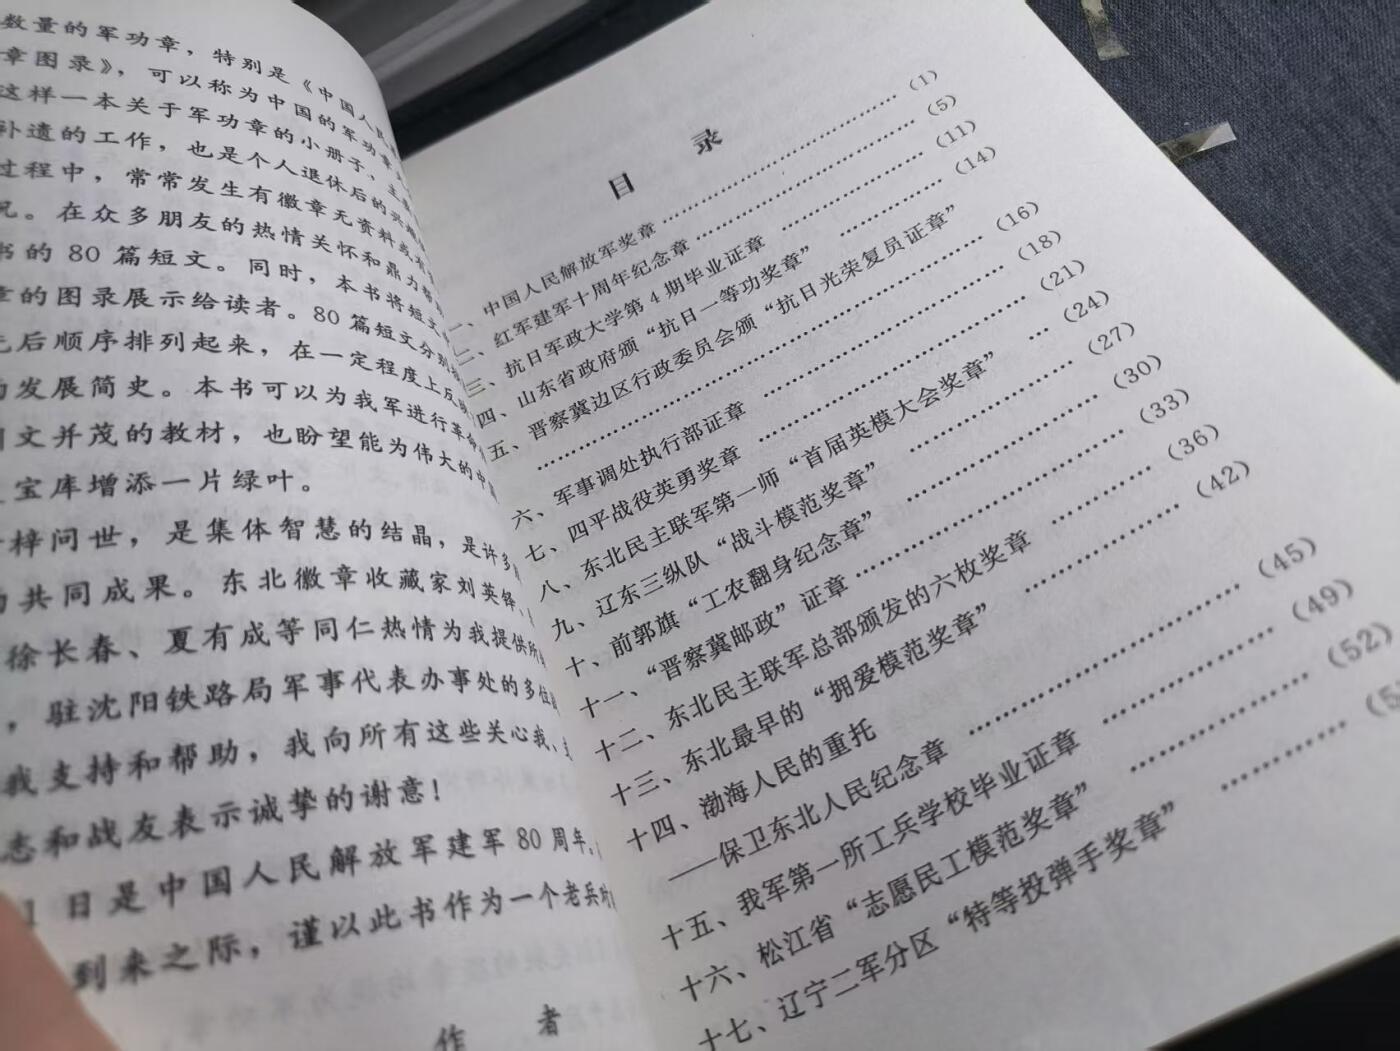 数量的军功章，特别是《中国人民
章图录》，可以称为中国的军功章
这样一本关于军功章的小册子，主
补遗的工作，也是个人退休后的兴
过程中，常常发生有徽章无资料或
况。在众多朋友的热情关怀和鼎力帮
书的80篇短文。同时，本书将短文
章的图录展示给读者。80篇短文分别
先后顺序排列起来，在一定程度上反
发展简史。本书可以为我军进行革命
图文并茂的教材，也盼望能为伟大的中
宝库增添一片绿叶。
梓问世，是集体智慧的结晶，是许多
共同成果。东北徽章收藏家刘英铎、
徐长春、夏有成等同仁热情为我提供所
，驻沈阳铁路局军事代表办事处的多位
我支持和帮助，我向所有这些关心我、
志和战友表示诚挚的谢意！
1日是中国人民解放军建军80周年，
到来之际，谨以此书作为一个老兵对
作 者
目 录
一、中国人民解放军奖章……………………（1）
二、红军建军十周年纪念章……………………（5）
三、抗日军政大学第4期毕业证章……………………（11）
四、山东省政府颁“抗日一等功奖章”……………（14）
五、晋察冀边区行政委员会颁“抗日光荣复员证章”
……………………………………（16）
六、军事调处执行部证章……………………（18）
七、四平战役英勇奖章……………………（21）
八、东北民主联军第一师“首届英模大会奖章”……（24）
九、辽东三纵队“战斗模范奖章”……………………（27）
十、前郭旗“工农翻身纪念章”……………………（30）
十一、“晋察冀邮政”证章……………………（33）
十二、东北民主联军总部颁发的六枚奖章…………（36）
十三、东北最早的“拥爱模范奖章”……………………（42）
十四、渤海人民的重托
——保卫东北人民纪念章……………………（45）
十五、我军第一所工兵学校毕业证章……………（49）
十六、松江省“志愿民工模范奖章”……………（52）
十七、辽宁二军分区“特等投弹手奖章”…………（5